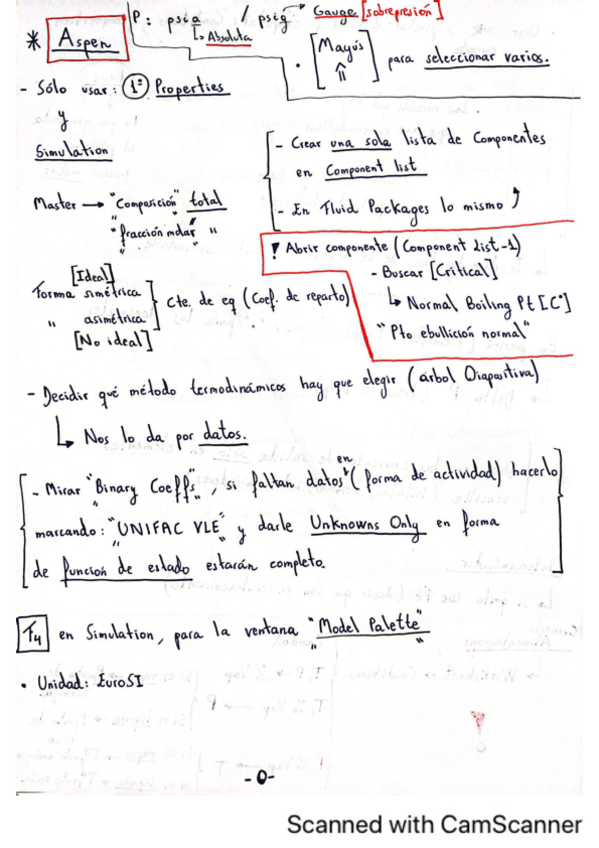 * Aspen
P: psia / psig → Gauge [sobrepresión]
↳ Absoluta
· [Mayús ⇑] para seleccionar varios.
- Sólo usar: 1º Properties
y
Simulation
- Crear una sola lista de Componentes
en Component list
- En Fluid Packages lo mismo
Master → "Composición" total
" "fracción molar" "
! Abrir componente (Component List-1)
- Buscar [Critical]
↳ Normal Boiling Pt [Cº]
"Pto ebullición normal"
[Ideal]
Forma simétrica
" asimétrica
[No ideal]
Cte. de eq (Coef. de reparto)
- Decidir qué método termodinámicos hay que elegir (árbol Diapositiva)
↳ Nos lo da por datos.
- Mirar "Binary Coeffs", si faltan datos en (forma de actividad) hacerlo
marcando: "UNIFAC VLE" y darle Unknowns Only en forma
de función de estado estarán completo.
F4 en Simulation, para la ventana "Model Palette"
· Unidad: EuroSI
-0-
Scanned with CamScanner